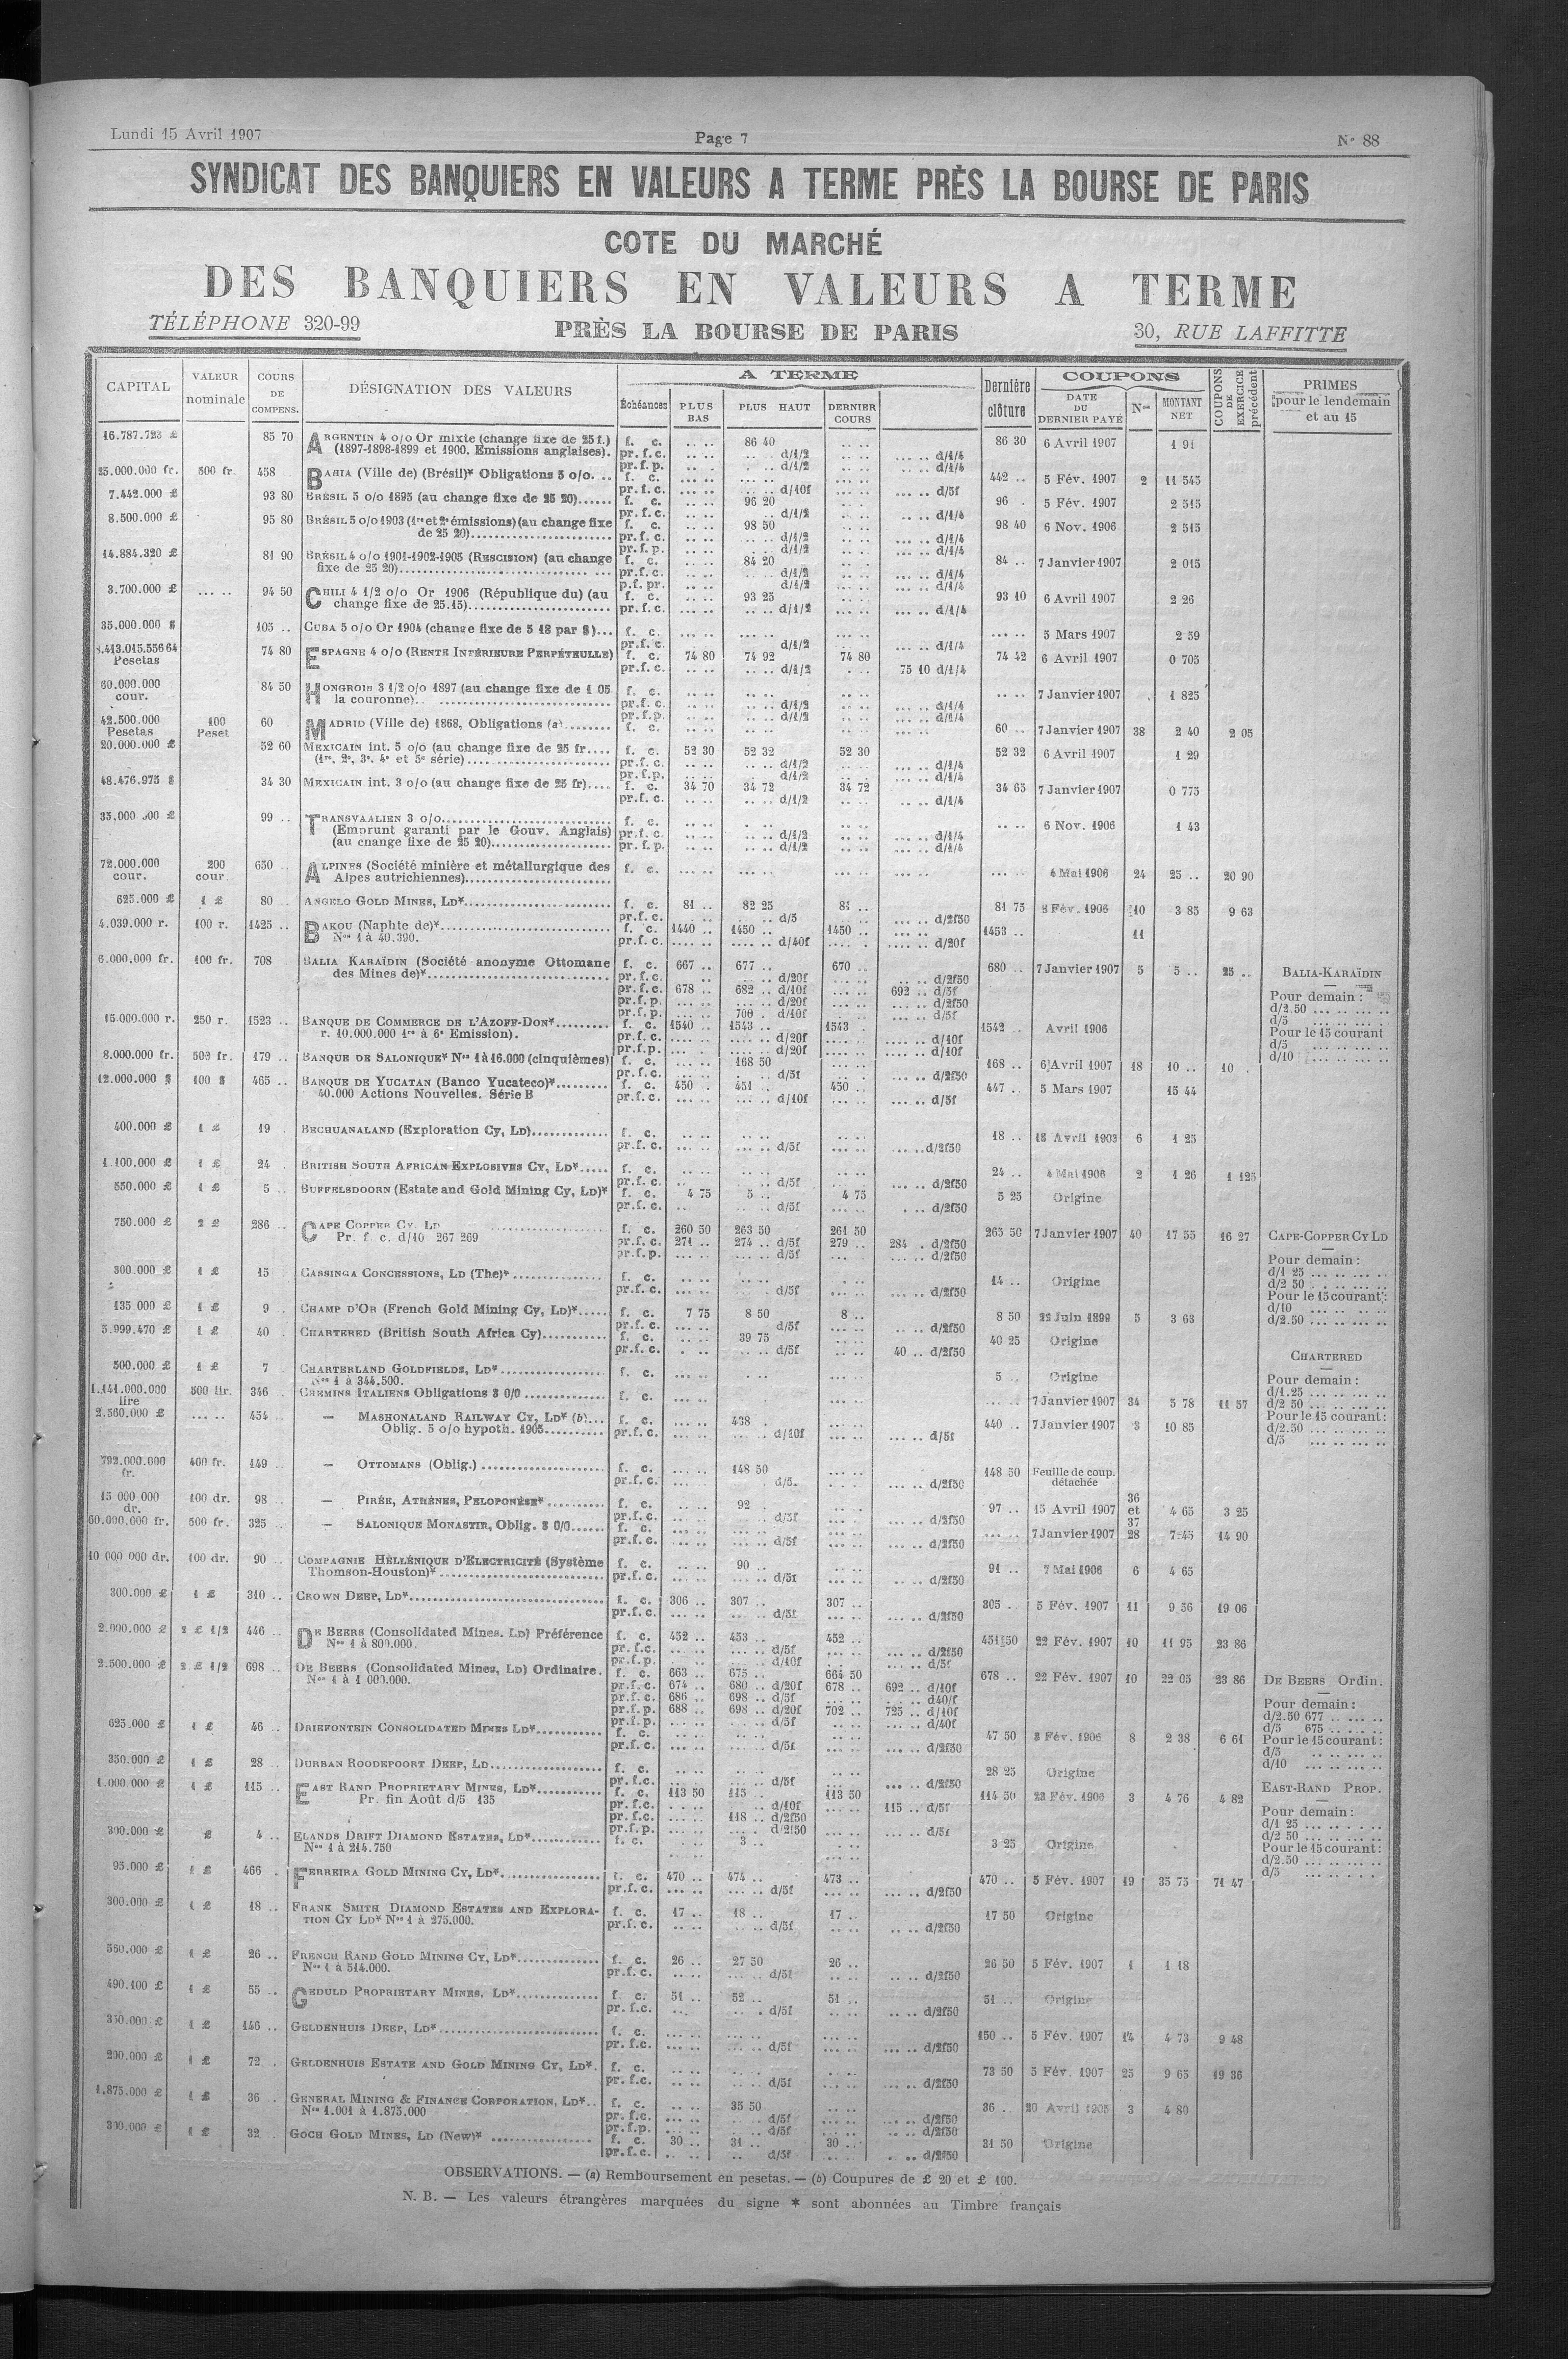 Lundi 15 Avril 1907 Page 7 N° 88
SYNDICAT DES BANQUIERS EN VALEURS A TERME PRÈS LA BOURSE DE PARIS
COTE DU MARCHÉ
DES BANQUIERS EN VALEURS A TERME
TÉLÉPHONE 320-99 PRÈS LA BOURSE DE PARIS 30, RUE LAFFITTE
CAPITAL VALEUR nominale COURS DE COMPENS. DÉSIGNATION DES VALEURS A TERME Échéances PLUS BAS PLUS HAUT DERNIER COURS Dernière clôture COUPONS DATE DU DERNIER PAYÉ Nos MONTANT NET COUPONS DE EXERCICE précédent PRIMES pour le lendemain et au 15
16.787.723 £ 85 70 ARGENTIN 4 o/o Or mixte (change fixe de 25 f.) f. c. 86 40 86 30 6 Avril 1907 1 91
(1897-1898-1899 et 1900. Emissions anglaises). pr. f. c. d/1/2 d/1/4
pr. f. p. d/1/2 d/1/4
25.000.000 fr. 500 fr. 458 BAHIA (Ville de) (Brésil)* Obligations 5 o/o. f. c. 442 .. 5 Fév. 1907 2 11 545
pr. f. c. d/10f d/5f
7.442.000 £ 93 80 BRÉSIL 5 o/o 1895 (au change fixe de 25 20) f. c. 96 20 96 . 5 Fév. 1907 2 515
pr. f. c. d/1/2 d/1/4
8.500.000 £ 95 80 BRÉSIL 5 o/o 1903 (1re et 2e émissions) (au change fixe f. c. 98 50 98 40 6 Nov. 1906 2 515
de 25 20) pr. f. c. d/1/2 d/1/4
pr. f. p. d/1/2 d/1/4
14.884.320 £ 81 90 BRÉSIL 4 o/o 1901-1902-1905 (RESCISION) (au change f. c. 84 20 84 .. 7 Janvier 1907 2 015
fixe de 25 20) pr. f. c. d/1/2 d/1/4
p. f. pr. d/1/2 d/1/4
3.700.000 £ 94 50 CHILI 4 1/2 o/o Or 1906 (République du) (au f. c. 93 25 93 10 6 Avril 1907 2 26
change fixe de 25.15) pr. f. c. d/1/2 d/1/4
35.000.000 $ 105 .. CUBA 5 o/o Or 1904 (change fixe de 5 18 par $) f. c. 5 Mars 1907 2 59
pr. f. c. d/1/2 d/1/4
.413.015.556 64 Pesetas 74 80 ESPAGNE 4 o/o (RENTE INTÉRIEURE PERPÉTUELLE) f. c. 74 80 74 92 74 80 74 42 6 Avril 1907 0 705
pr. f. c. d/1/2 75 10 d/1/4
60.000.000 cour. 84 50 HONGROIS 3 1/2 o/o 1897 (au change fixe de 1 05 f. c. 7 Janvier 1907 1 825
la couronne) pr. f. c. d/1/2 d/1/4
pr. f. p. d/1/2 d/1/4
42.500.000 Pesetas 100 Peset 60 MADRID (Ville de) 1868, Obligations (a) f. c. 60 .. 7 Janvier 1907 38 2 40 2 05
20.000.000 £ 52 60 MEXICAIN int. 5 o/o (au change fixe de 25 fr. f. c. 52 30 52 32 52 30 52 32 6 Avril 1907 1 29
(1re, 2e, 3e, 4e et 5e série) pr. f. c. d/1/2 d/1/4
pr. f. p. d/1/2 d/1/4
48.476.975 $ 34 30 MEXICAIN int. 3 o/o (au change fixe de 25 fr) f. c. 34 70 34 72 34 72 34 65 7 Janvier 1907 0 775
pr. f. c. d/1/2 d/1/4
99 .. TRANSVAALIEN 3 o/o f. c. 6 Nov. 1906 1 43
(Emprunt garanti par le Gouv. Anglais) pr. f. c. d/1/2 d/1/4
(au change fixe de 25 20) pr. f. p. d/1/2 d/1/4
72.000.000 cour. 200 cour 650 ALPINES (Société minière et métallurgique des f. c. 4 Mai 1906 24 25 .. 20 90
Alpes autrichiennes)
625.000 £ 1 £ 80 .. ANGELO GOLD MINES, LD* f. c. 81 .. 82 25 81 .. 81 75 8 Fév. 1906 10 3 85 9 63
pr. f. c. d/5 d/2f50
4.039.000 r. 100 r. 1425 .. BAKOU (Naphte de)* f. c. 1440 .. 1450 .. 1450 .. 1453 .. 11
Nos 1 à 40.390. pr. f. c. d/40f d/20f
6.000.000 fr. 100 fr. 708 BALIA KARAÏDIN (Société anonyme Ottomane f. c. 667 .. 677 .. 670 .. 680 .. 7 Janvier 1907 5 5 .. 25 .. BALIA-KARAÏDIN
des Mines de)* pr. f. c. d/20f d/2f50
pr. f. c. 678 .. 682 .. d/10f 692 .. d/5f Pour demain :
pr. f. p. d/20f d/2f50 d/2.50
pr. f. p. 700 . d/10f d/5f d/5
15.000.000 r. 250 r. 1523 .. BANQUE DE COMMERCE DE L'AZOFF-DON* f. c. 1540 .. 1543 .. 1543 1542 .. Avril 1906 Pour le 15 courant
r. 10.000.000 1re à 6e Emission). pr. f. c. d/20f d/10f d/5
pr. f. p. d/20f d/10f d/10
8.000.000 fr. 500 fr. 179 .. BANQUE DE SALONIQUE* Nos 1 à 16.000 (cinquièmes) f. c. 168 50 168 .. 6 Avril 1907 18 10 .. 10
pr. f. c. d/5f d/2f50
12.000.000 $ 100 $ 465 .. BANQUE DE YUCATAN (Banco Yucateco)* f. c. 450 . 451 . 450 .. 447 .. 5 Mars 1907 15 44
40.000 Actions Nouvelles. Série B pr. f. c. d/10f d/5f
400.000 £ 1 £ 19 BECHUANALAND (Exploration Cy, LD) f. c. 18 .. 18 Avril 1903 6 1 25
pr. f. c. d/5f d/2f50
1.100.000 £ 1 £ 24 BRITISH SOUTH AFRICAN EXPLOSIVES CY, LD* f. c. 24 .. 4 Mai 1906 2 1 26 1 125
pr. f. c. d/5f d/2f50
550.000 £ 1 £ 5 .. BUFFELSDOORN (Estate and Gold Mining Cy, LD)* f. c. 4 75 5 .. 4 75 5 25 Origine
pr. f. c. d/5f d/2f50
750.000 £ 2 £ 286 .. CAPE COPPER CY, LD f. c. 260 50 263 50 261 50 265 50 7 Janvier 1907 40 17 55 16 27 CAPE-COPPER CY LD
Pr. f. c. d/10 267 269 pr. f. c. 271 .. 274 .. d/5f 279 .. 284 . d/2f50
pr. f. p. d/5f d/2f50 Pour demain :
300.000 £ 1 £ 15 CASSINGA CONCESSIONS, LD (The)* f. c. 14 .. Origine d/1 25
pr. f. c. d/5f d/2f50 d/2 50
Pour le 15 courant :
135 000 £ 1 £ 9 CHAMP D'OR (French Gold Mining Cy, LD)* f. c. 7 75 8 50 8 .. 8 50 22 Juin 1899 5 3 63 d/10
pr. f. c. d/5f d/2f50 d/2.50
5.999.470 £ 1 £ 40 CHARTERED (British South Africa Cy) f. c. 39 75 40 25 Origine
pr. f. c. d/5f 40 .. d/2f50 CHARTERED
500.000 £ 1 £ 7 CHARTERLAND GOLDFIELDS, LD* f. c. 5 .. Origine
Nos 1 à 344.500. Pour demain :
1.141.000.000 lire 500 lir. 346 CHEMINS ITALIENS Obligations 3 0/0 f. c. 7 Janvier 1907 34 5 78 11 57 d/1.25
d/2 50
2.560.000 £ 454 .. — MASHONALAND RAILWAY CY, LD* (b) f. c. 438 . 440 .. 7 Janvier 1907 3 10 85 Pour le 15 courant :
Oblig. 5 o/o hypoth. 1905 pr. f. c. d/10f d/5f d/2.50
d/5
792.000.000 fr. 400 fr. 149 .. — OTTOMANS (Oblig.) f. c. 148 50 148 50 Feuille de coup. détachée
pr. f. c. d/5 d/2f50
15 000 000 dr. 100 dr. 98 .. — PIRÉE, ATHÈNES, PELOPONÈSE* f. c. 92 . 97 .. 15 Avril 1907 36 et 37 4 65 3 25
pr. f. c. d/5f d/2f50
60.000.000 fr. 500 fr. 325 — SALONIQUE MONASTIR, Oblig. 3 0/0 f. c. 7 Janvier 1907 28 7 45 14 90
pr. f. c. d/5f d/2f50
10 000 000 dr. 100 dr. 90 .. COMPAGNIE HELLÉNIQUE D'ELECTRICITÉ (Système f. c. 90 .. 91 .. 7 Mai 1906 6 4 65
Thomson-Houston)* pr. f. c. d/5f d/2f50
300.000 £ 1 £ 310 .. CROWN DEEP, LD* f. c. 306 .. 307 .. 307 .. 305 . 5 Fév. 1907 11 9 56 19 06
pr. f. c. d/5f d/2f50
2.000.000 £ 2 £ 1/2 446 .. DE BEERS (Consolidated Mines. LD) Préférence f. c. 452 .. 453 .. 452 .. 451 50 22 Fév. 1907 10 11 95 23 86
Nos 1 à 800.000. pr. f. c. d/5f d/2f50
pr. f. p. d/10f d/5f
2.500.000 £ 2 £ 1/2 698 .. DE BEERS (Consolidated Mines, LD) Ordinaire. f. c. 663 .. 675 .. 664 50 678 .. 22 Fév. 1907 10 22 05 23 86 DE BEERS Ordin.
Nos 1 à 1 000.000. pr. f. c. 674 .. 680 .. d/20f 678 .. 692 .. d/10f
pr. f. c. 686 .. 698 .. d/5f d40/f Pour demain :
pr. f. p. 688 .. 698 .. d/20f 702 .. 725 .. d/10f d/2.50 677
pr. f. p. d/5f d/40f d/5 675
625.000 £ 1 £ 46 .. DRIEFONTEIN CONSOLIDATED MINES LD* f. c. 47 50 8 Fév. 1906 8 2 38 6 61 Pour le 15 courant :
pr. f. c. d/5f d/2f50 d/5
350.000 £ 1 £ 28 .. DURBAN ROODEPOORT DEEP, LD f. c. 28 25 Origine d/10
pr. f. c. d/5f d/2f50
1.000 000 £ 1 £ 115 .. EAST RAND PROPRIETARY MINES, LD* f. c. 113 50 115 .. 113 50 114 50 23 Fév. 1906 3 4 76 4 82 EAST-RAND PROP.
Pr. fin Août d/5 135 pr. f. c. d/10f 115 .. d/5f
pr. f. c. 118 .. d/2f50 Pour demain :
pr. f. p. d/2f50 d/5f d/1 25
300.000 £ 4 .. ELANDS DRIFT DIAMOND ESTATES, LD* f. c. 3 .. 3 25 Origine d/2 50
Nos 1 à 214.750 Pour le 15 courant :
d/2.50
95.000 £ 1 £ 466 . FERREIRA GOLD MINING CY, LD* f. c. 470 .. 474 .. 473 .. 470 .. 5 Fév. 1907 19 35 75 71 47 d/5
pr. f. c. d/5f d/2f50
300.000 £ 1 £ 18 .. FRANK SMITH DIAMOND ESTATES AND EXPLORA- f. c. 17 .. 18 .. 17 .. 17 50 Origine
TION CY LD* Nos 1 à 275.000. pr. f. c. d/5f d/2f50
550.000 £ 1 £ 26 .. FRENCH RAND GOLD MINING CY, LD* f. c. 26 .. 27 50 26 .. 26 50 5 Fév. 1907 1 1 18
Nos 1 à 514.000. pr. f. c. d/5f d/2f50
490.100 £ 1 £ 55 .. GEDULD PROPRIETARY MINES, LD* f. c. 51 .. 52 .. 51 .. 51 .. Origine
pr. f. c. d/5f d/2f50
350.000 £ 1 £ 146 .. GELDENHUIS DEEP, LD* f. c. 150 .. 5 Fév. 1907 14 4 73 9 48
pr. f. c. d/5f d/2f50
200.000 £ 1 £ 72 . GELDENHUIS ESTATE AND GOLD MINING CY, LD*. f. c. 73 50 5 Fév. 1907 25 9 65 19 36
pr. f. c. d/5f d/2f50
1.875.000 £ 1 £ 36 .. GENERAL MINING & FINANCE CORPORATION, LD* f. c. 35 50 36 .. 20 Avril 1905 3 4 80
Nos 1.001 à 1.875.000 pr. f. c. d/5f d/2f50
pr. f. p. d/5f d/2f50
300.000 £ 1 £ 32 . GOCH GOLD MINES, LD (New)* f. c. 30 .. 31 .. 30 .. 31 50 Origine
pr. f. c. d/5f d/2f50
OBSERVATIONS. — (a) Remboursement en pesetas. — (b) Coupures de £ 20 et £ 100.
N. B. — Les valeurs étrangères marquées du signe * sont abonnées au Timbre français